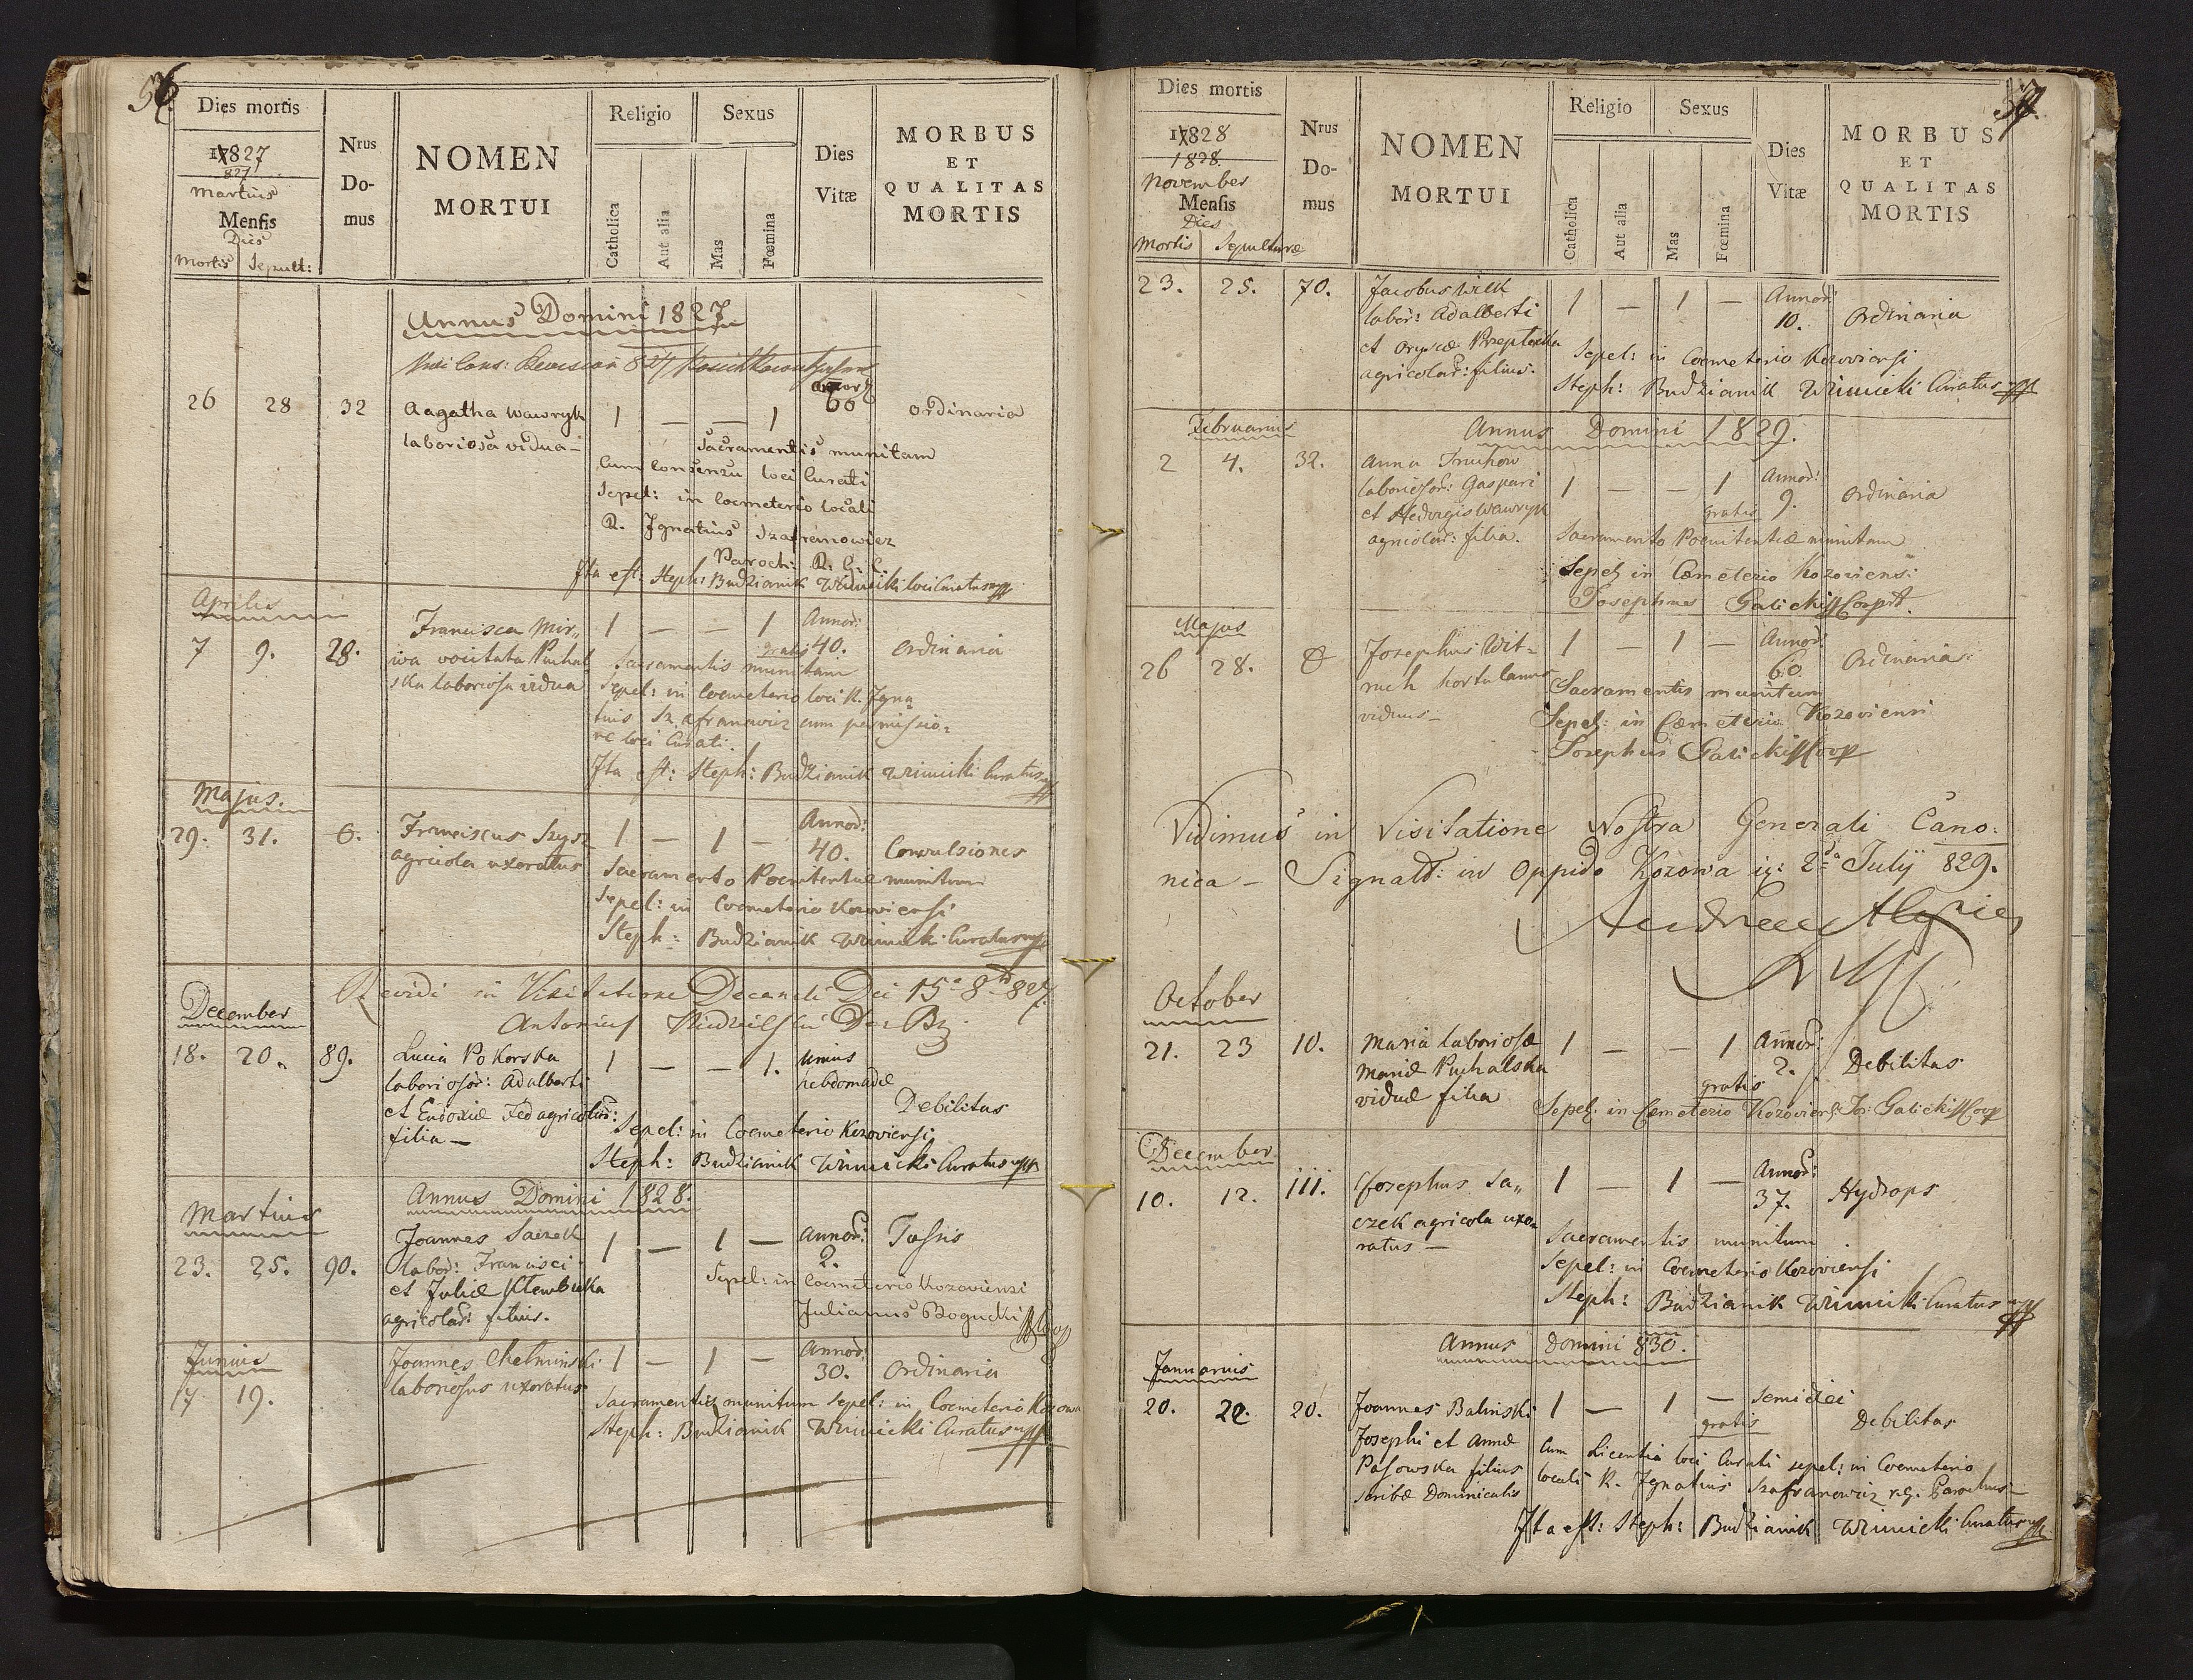 56.
Dies mortis
Nrus Do- mus
NOMEN MORTUI
Religio
Sexus
Dies Vitæ
MORBUS ET QUALITAS MORTIS
1827
827
Martius
Mensis
Dies
Mortis Sepult:
Catholica
Aut alia
Mas
Fœmina
Annus Domini 1827
26 28 32 Aagatha Wawryk 1 — — 1 60 ordinaria
laboriosa vidua —
Sacramentis munitam
Cum consensu loci Curati
Sepel: in Coemeterio locali
R. Ignatius Szafranowicz
Paroch: R. G. C.
Ita est: Steph: Budzianik Winnicki loci Curatus mpp
Aprilis
7 9. 28. Francisca Mir- 1 — — 1 Annor: 40. ordinaria
gratis
ska laboriosa vidua
Sacramentis munitam
Sepel: in Coemeterio loci R. Igna
tius Szafranowicz cum permissio-
ne loci Curati.
Ita est: Steph: Budzianik Winnicki Curatus mpp
Majus.
29. 31. 6. Franciscus Szysz 1 — 1 — Annor: 40. Convulsiones
agricola uxoratus
Sacramento Poenitentiae munitum
Sepel: in Coemeterio Kozoviensi
Steph: Budzianik Winnicki Curatus mpp
Revidi in Visitatione Decanali Die 15a 8bris 827.
Antonius
December
18. 20. 89. Lucia Pokorska 1 — — 1. unius hebdomadæ Debilitas
laboriosor: Adalberti
et Eudoxiæ Fed agricolar:
filia —
Sepel: in Coemeterio Kozoviensi
Steph: Budzianik Winnicki Curatus mpp
Annus Domini 1828.
Martius
23. 25. 90. Joannes Saczek 1 — 1 — Annor: 2. Tussis
labor: Francisci
et Juliæ
agricolar: filius.
Sepel: in Coemeterio Kozoviensi
Julianus Bogucki Coop
Junius
17 19. Joannes Chelminski 1 — 1 — Annor: 30. Ordinaria
laboriosus uxoratus
Sacramentis munitum sepel: in Coemeterio Kozow
Steph: Budzianik Winnicki Curatus mpp
57.
Dies mortis
Nrus Do- mus
NOMEN MORTUI
Religio
Sexus
Dies Vitæ
MORBUS ET QUALITAS MORTIS
1828
1828.
November
Mensis
Dies
Mortis Sepulturæ
Catholica
Aut alia
Mas
Fœmina
23. 25. 70. Jacobus Wilk 1 — 1 — Annor: 10. Ordinaria
labor: Adalberti
et Orysæ
agricolar: filius.
Sepel: in Coemeterio Kozoviensi
Steph: Budzianik Winnicki Curatus mpp
Annus Domini 1829.
Februarius
2 4. 32. Anna 1 — — 1 Annor: 9. Ordinaria
laboriosor: Gaspari
et Hedvigis Wawryk
agricolar: filia.
gratis
Sacramento Poenitentiæ munitam
Sepel: in Cœmeterio Kozoviensi
Josephus Galicki Coop
Majus
26 28. Josephus Wit- 1 — 1 — Annor: 60 Ordinaria
ruch hortulanus
viduus —
Sacramentis munitum
Sepel: in Cœmeterio Kozoviensi
Josephus Galicki Coop
Vidimus in Visitatione Nostra Generali Cano-
nica — Signatt: in Oppido Kozowa 2da Julij 829.
October
21. 23 10. Maria laboriosæ 1 — — 1 Annor: 2. Debilitas
Mariæ Puchalska
viduæ filia
gratis
Sepel: in Cœmeterio Kozoviensi Jos: Galicki Coop
December
10. 12. 111. Josephus Sa- 1 — 1 — Annor: 37. Hydrops
czek agricola uxo-
ratus —
Sacramentis munitum
Sepel: in Coemeterio Kozoviensi
Steph: Budzianik Winnicki Curatus mpp
Annus Domini 830.
Januarius
20. 22. 20. Joannes Balinski 1 — 1 — Semidiei Debilitas
gratis
Josephi et Annæ
Pasowska filius
scribæ Dominicalis
Cum Licentia loci Curati sepel: in Coemeterio
locali R. Ignatius Szafranowicz r.g. Parochus —
Ita est: Steph: Budzianik Winnicki Curatus mpp